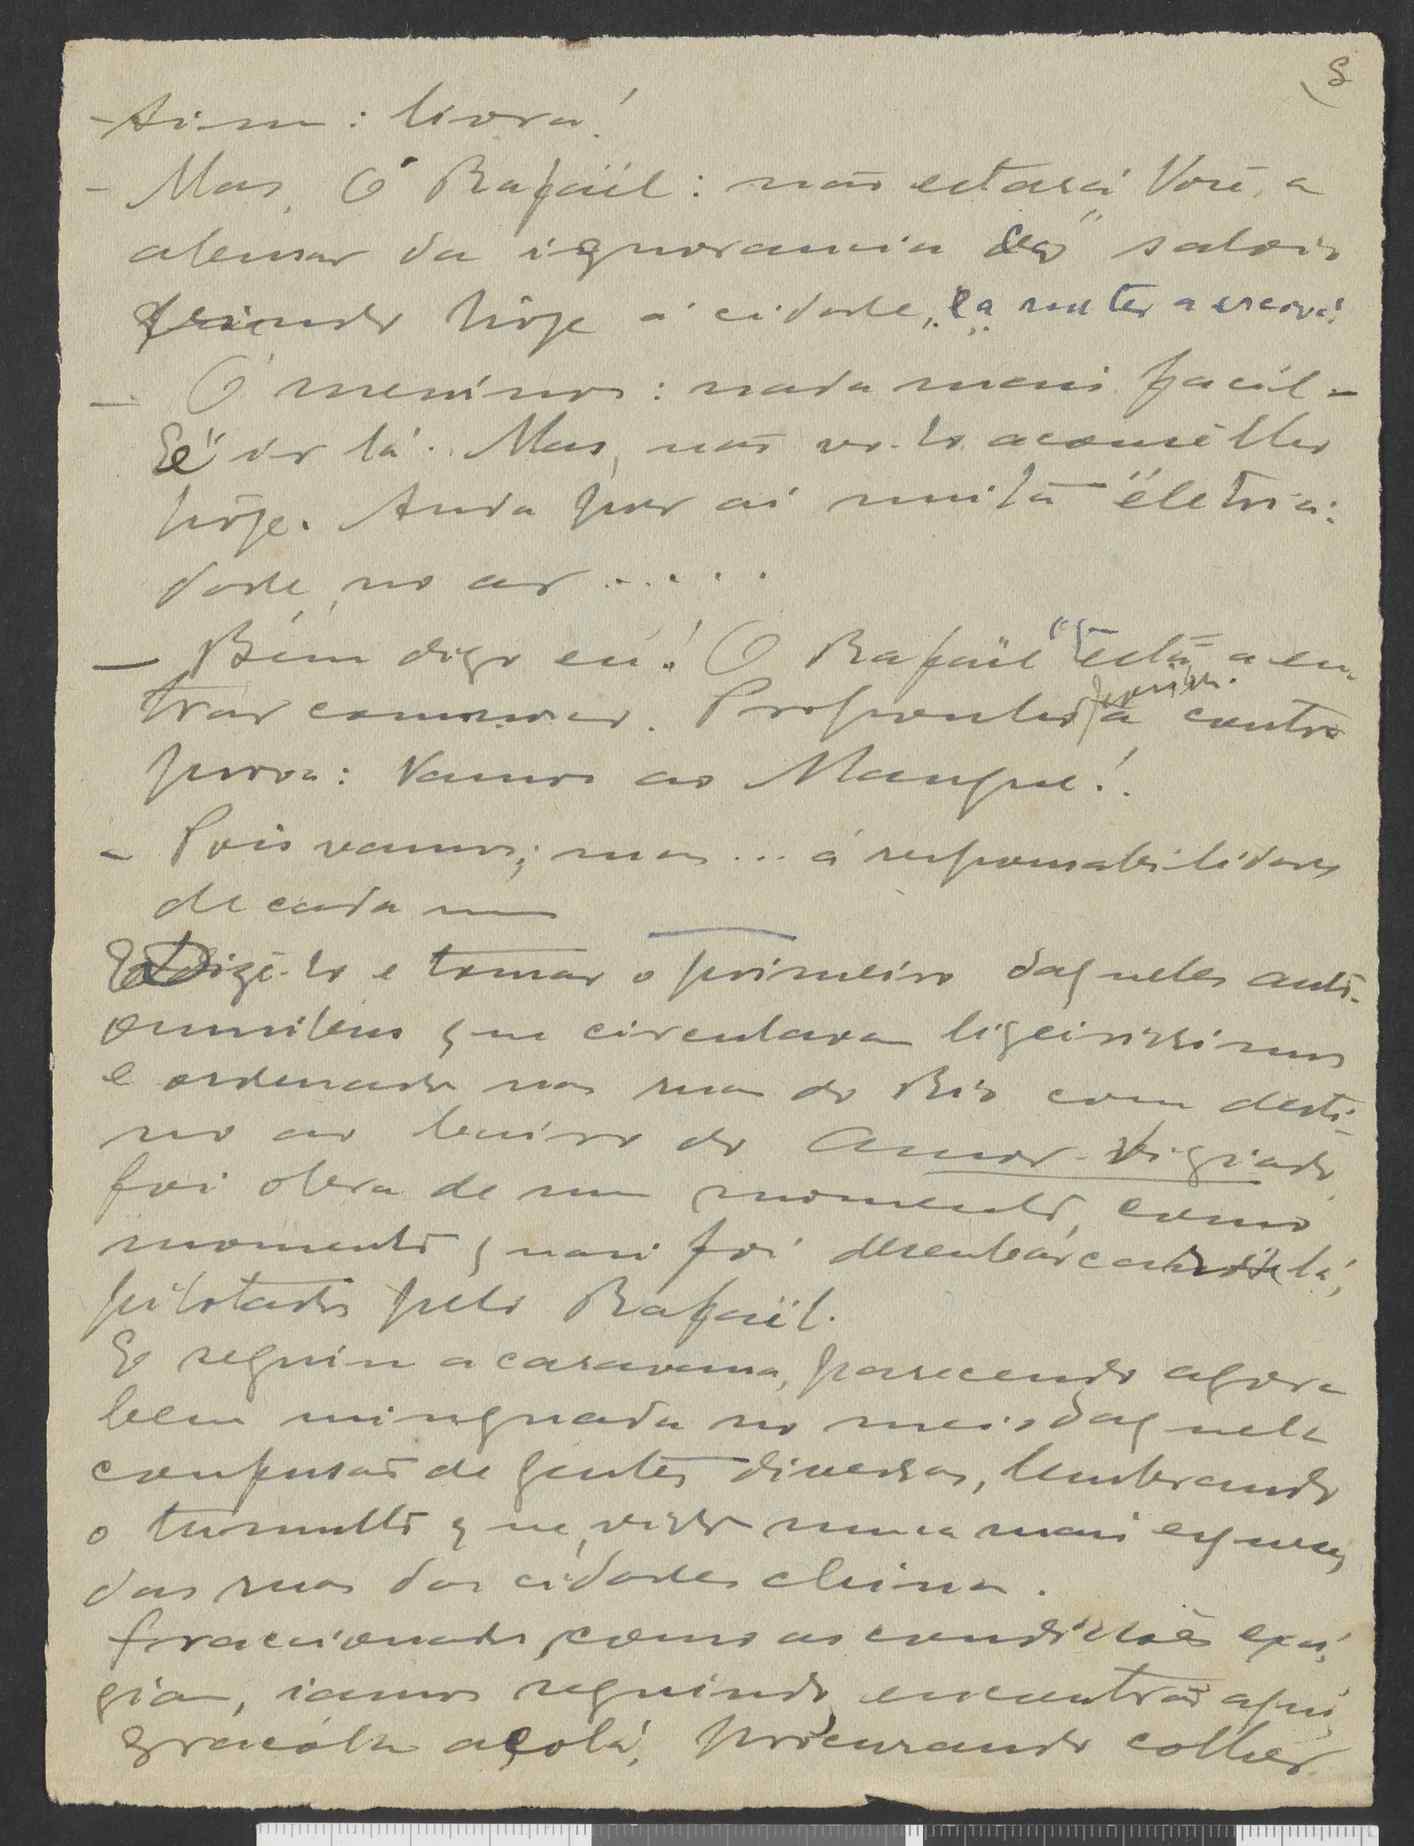 8
- Sim: livra!
- Mas, Ó Rafaël: não estará Você, a
abusar da ignorancia dos saloios
vindos hoje á cidade, e a meter a escova?
- Ó meninos: nada mais facil -
é ir lá. Mas, não vo-lo aconselho
hoje. Anda por ai muita eletrici-
dade no ar .....
- Bem digo eu! O Rafaël está a en-
trar comnosco. Proponho a contra
prova: Vamos ao Mangue!
- Pois vamos; mas ... á responsabilidade
de cada um
Dizê-lo e tomar o primeiro daqueles auti-
omnibus que circulavam ligeirissimos
e ordenados nas ruas do Rio com desti-
no ao bairro do Amor-Vigiado,
foi obra de um momento, como
momento quasi foi desembarcar lá,
pilotados pelo Rafaël.
E seguiu a caravana, parecendo agora
bem minguada no meio daquela
confusão de gentes diversas, lembrando
o tumulto que, visto nunca mais esquece,
das ruas das cidades chinas.
Fraccionados, como as condições exi-
giam, iamos seguindo, encontrão aqui,
graçola acolá, procurando colher